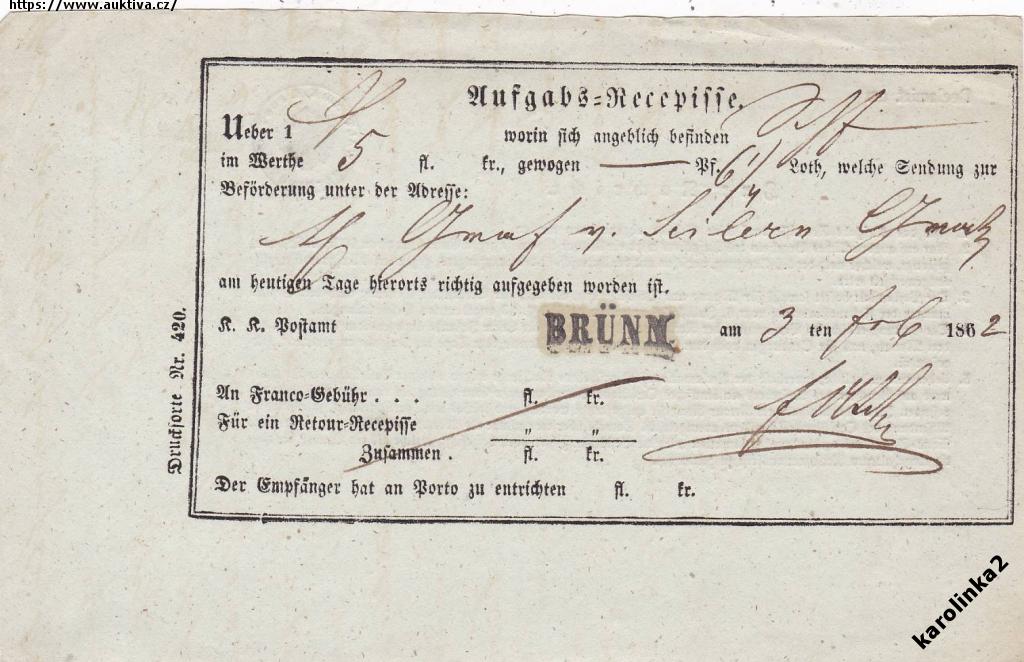 https://www.auktiva.cz/
Aufgabs-Recepisse.
Ueber 1 worin sich angeblich befinden
im Werthe 5 fl. kr., gewogen — Pf. 6 1/4 Loth, welche Sendung zur
Beförderung unter der Adresse:
Graf v. Seilern Gratz
am heutigen Tage hierorts richtig aufgegeben worden ist.
K. K. Postamt BRÜNN am 3 ten Feb 1862
An Franco-Gebühr . . . fl. kr.
Für ein Retour-Recepisse " "
Zusammen . fl. kr.
Der Empfänger hat an Porto zu entrichten fl. kr.
Drucksorte Nr. 420.
karolinka2